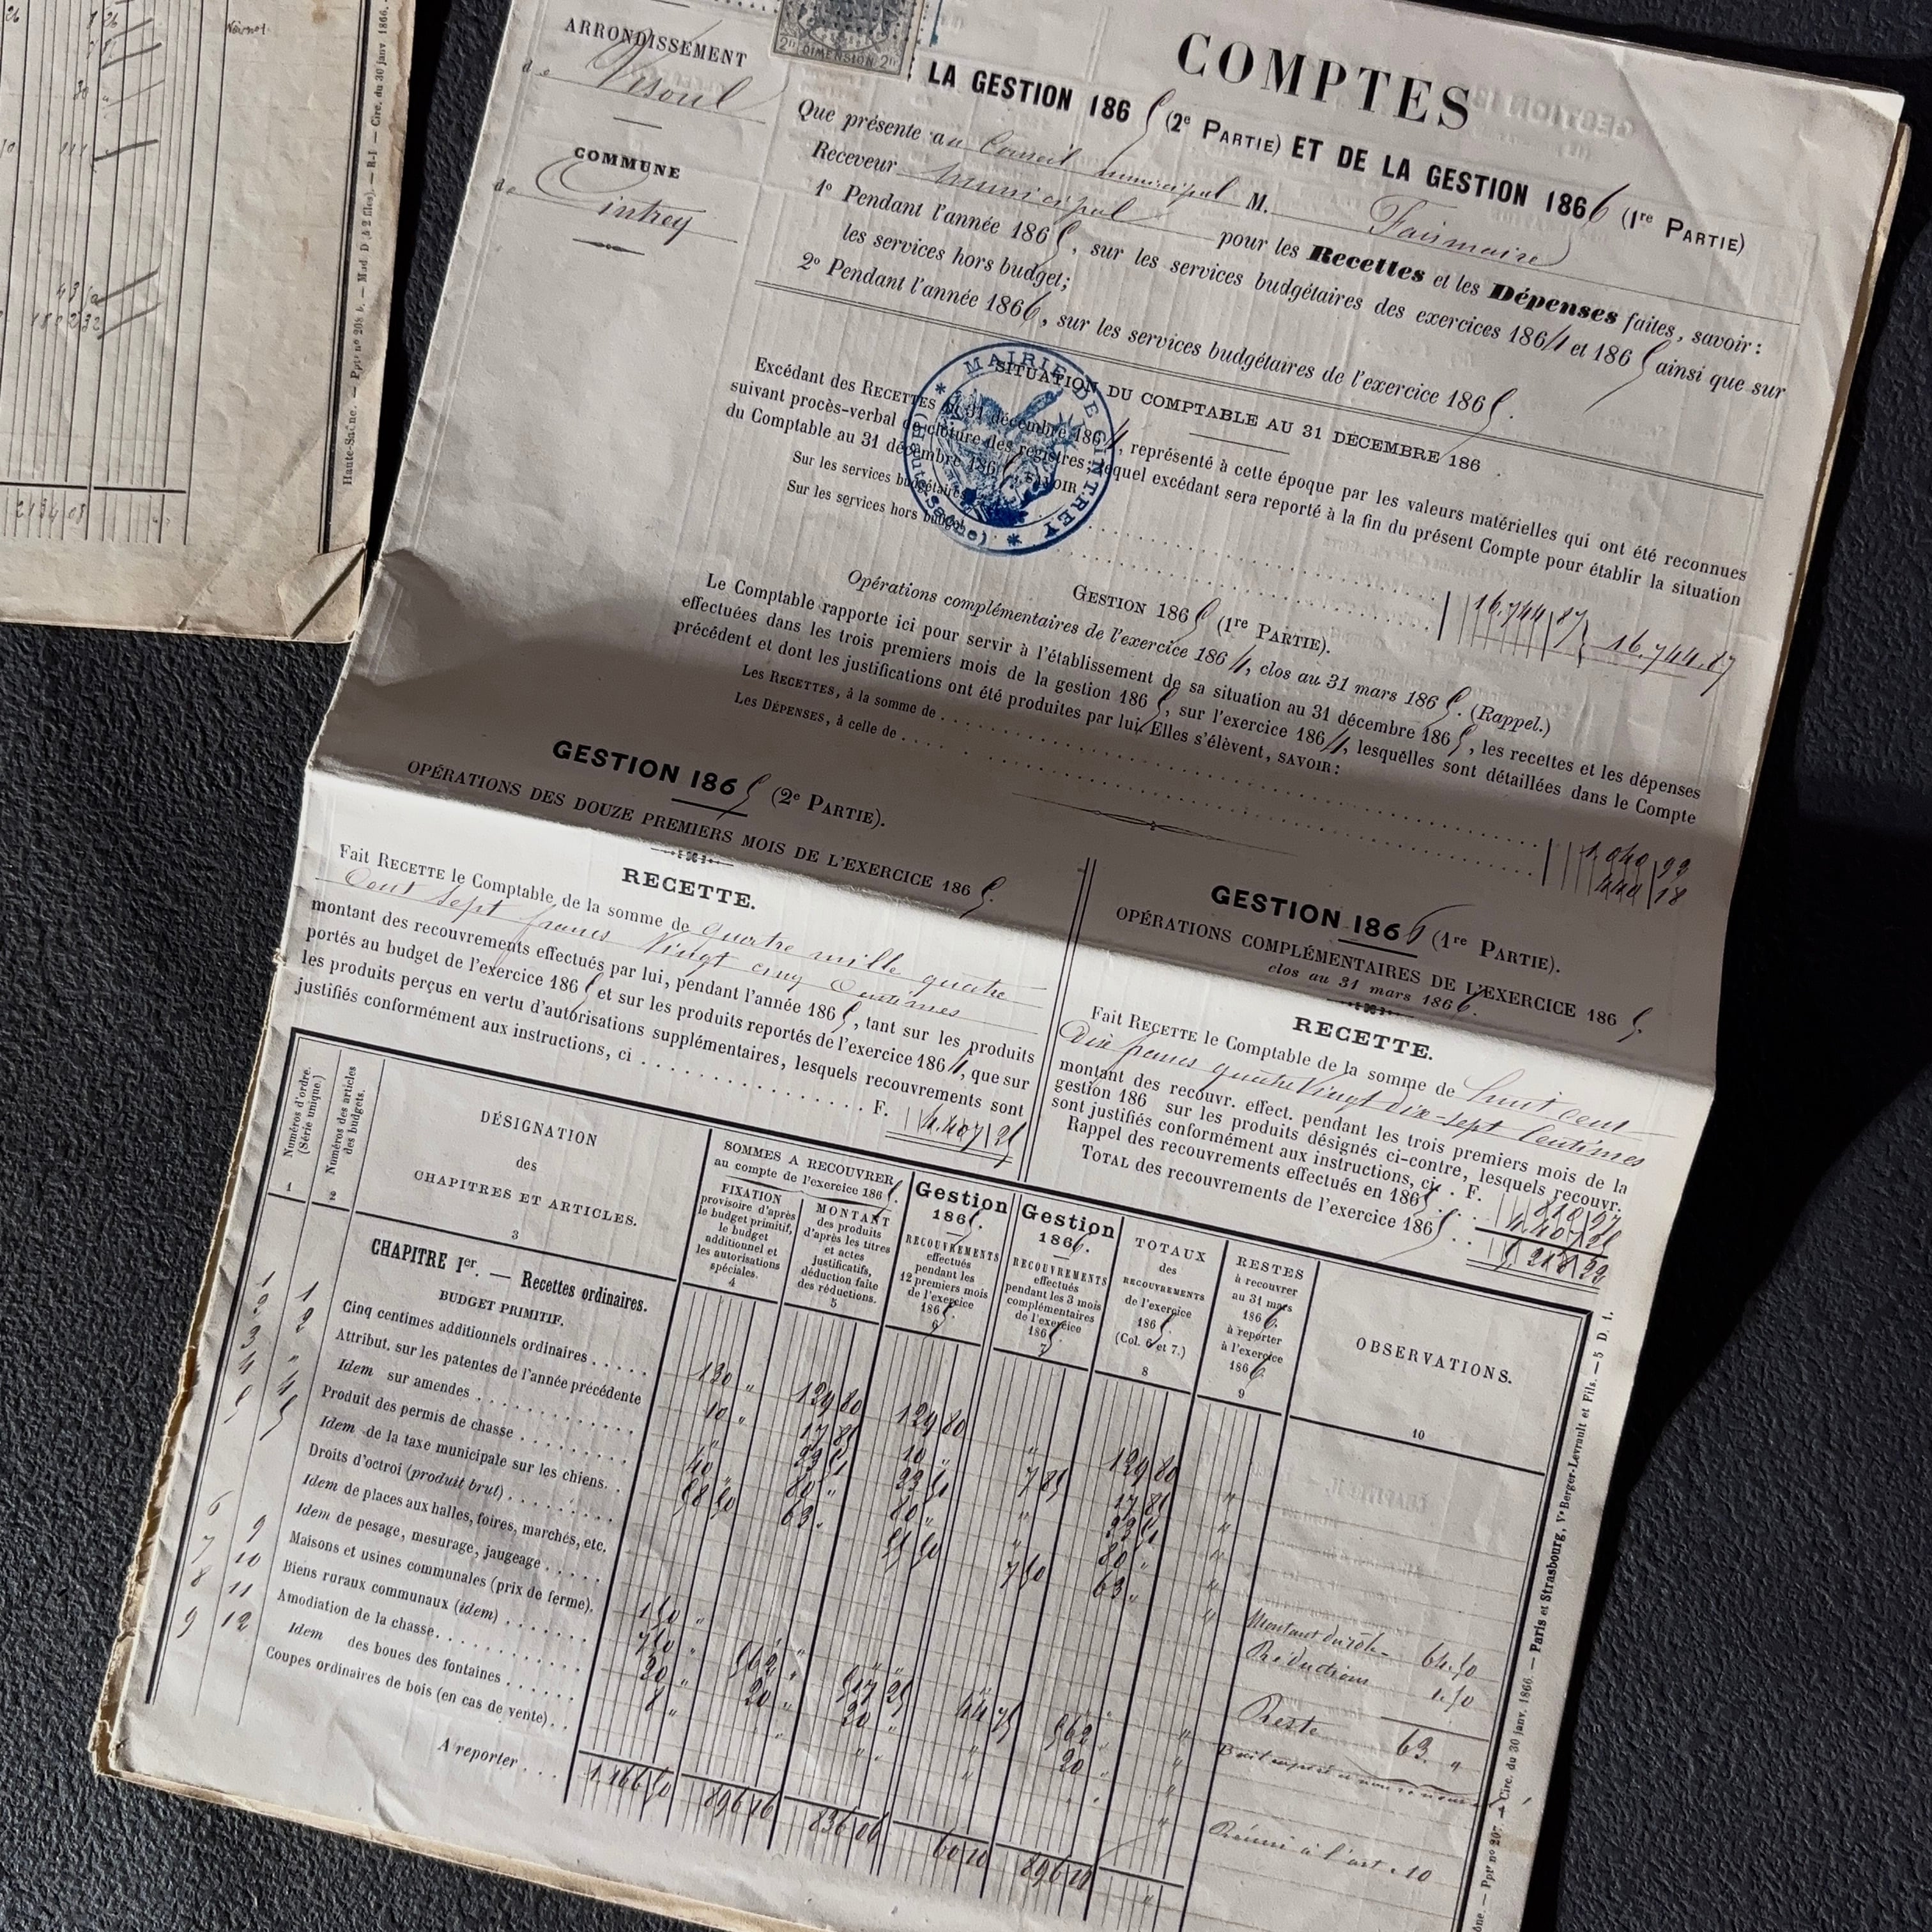 Haute-Saône. — Ppr nº 208 b. — Mod. D (à 2 files). — R-I — Circ. du 30 janv. 1866.
2134 03
ARRONDISSEMENT
de Vesoul
COMMUNE
de Cintrey
2 DIMENSION 2
COMPTES
LA GESTION 1865 (2e PARTIE) ET DE LA GESTION 1866 (1re PARTIE)
Que présente au Conseil municipal M.
Receveur municipal pour les Recettes et les Dépenses faites, savoir:
1º Pendant l'année 1865, sur les services budgétaires des exercices 1864 et 1865 ainsi que sur
les services hors budget;
2º Pendant l'année 1866, sur les services budgétaires de l'exercice 1865.
MAIRIE DE CINTREY
(Haute-Saône)
SITUATION DU COMPTABLE AU 31 DÉCEMBRE 186
Excédant des RECETTES au 31 décembre 1864, représenté à cette époque par les valeurs matérielles qui ont été reconnues
suivant procès-verbal de clôture des registres; lequel excédant sera reporté à la fin du présent Compte pour établir la situation
du Comptable au 31 décembre 1865, SAVOIR
Sur les services budgétaires
Sur les services hors budget
16.744 87 16.744.87
GESTION 1865 (1re PARTIE).
Opérations complémentaires de l'exercice 1864, clos au 31 mars 1865. (Rappel.)
Le Comptable rapporte ici pour servir à l'établissement de sa situation au 31 décembre 1865, les recettes et les dépenses
effectuées dans les trois premiers mois de la gestion 1865, sur l'exercice 1864, lesquelles sont détaillées dans le Compte
précédent et dont les justifications ont été produites par lui. Elles s'élèvent, SAVOIR:
Les RECETTES, à la somme de
Les DÉPENSES, à celle de
440 18
GESTION 1865 (2e PARTIE).
OPÉRATIONS DES DOUZE PREMIERS MOIS DE L'EXERCICE 1865.
RECETTE.
Fait RECETTE le Comptable de la somme de quatre mille quatre
Cent sept francs Vingt cinq Centimes
montant des recouvrements effectués par lui, pendant l'année 1865, tant sur les produits
portés au budget de l'exercice 1865 et sur les produits reportés de l'exercice 1864, que sur
les produits perçus en vertu d'autorisations supplémentaires, lesquels recouvrements sont
justifiés conformément aux instructions, ci F. 4.407 25
GESTION 1866 (1re PARTIE).
OPÉRATIONS COMPLÉMENTAIRES DE L'EXERCICE 1865
clos au 31 mars 1866.
RECETTE.
Fait RECETTE le Comptable de la somme de huit cent
Dix francs quatre Vingt dix-sept Centimes
montant des recouvr. effect. pendant les trois premiers mois de la
gestion 186 sur les produits désignés ci-contre, lesquels recouvr.
sont justifiés conformément aux instructions, ci F. 810 97
Rappel des recouvrements effectués en 1865
TOTAL des recouvrements de l'exercice 1865 5 218 22
Numéros d'ordre. (Série unique.)
1
Numéros des articles des budgets.
2
DÉSIGNATION
des
CHAPITRES ET ARTICLES.
3
SOMMES A RECOUVRER
au compte de l'exercice 1865.
FIXATION
provisoire d'après
le budget primitif,
le budget
additionnel et
les autorisations
spéciales.
4
MONTANT
des produits
d'après les titres
et actes
justificatifs,
déduction faite
des réductions.
5
Gestion
1865.
RECOUVREMENTS
effectués
pendant les
12 premiers mois
de l'exercice
1865.
6
Gestion
1866.
RECOUVREMENTS
effectués
pendant les 3 mois
complémentaires
de l'exercice
1865.
7
TOTAUX
des
RECOUVREMENTS
de l'exercice
1865.
(Col. 6 et 7.)
8
RESTES
à recouvrer
au 31 mars
1866.
à reporter
à l'exercice
1866.
9
OBSERVATIONS.
10
CHAPITRE Ier. — Recettes ordinaires.
BUDGET PRIMITIF.
1 1 Cinq centimes additionnels ordinaires 130 " 129 80 129 80 " 129 80 "
2 2 Attribut. sur les patentes de l'année précédente 10 " 17 85 10 " 7 85 17 85 "
3 " Idem sur amendes
4 4 Produit des permis de chasse 40 " 80 " 80 " " 80 "
5 5 Idem de la taxe municipale sur les chiens. 63 " 55 50 7 50 63 "
Droits d'octroi (produit brut)
Idem de places aux balles, foires, marchés, etc.
Idem de pesage, mesurage, jaugeage
6 9 Maisons et usines communales (prix de ferme). 150 "
7 10 Biens ruraux communaux (idem) 562 " 517 25 44 75 562 "
8 11 Amodiation de la chasse 20 " 20 " 20 " " 20 "
Idem des boues des fontaines
9 12 Coupes ordinaires de bois (en cas de vente) 8 "
A reporter 896 16 836 06 60 10
Montant du rôle 64.50
Réductions 1.50
Reste 63. "
Réuni à l'art. 10
Ppr nº 207. — Circ. du 30 janv. 1866. — Paris et Strasbourg, Ve Berger-Levrault et Fils. — 5 D. 1.